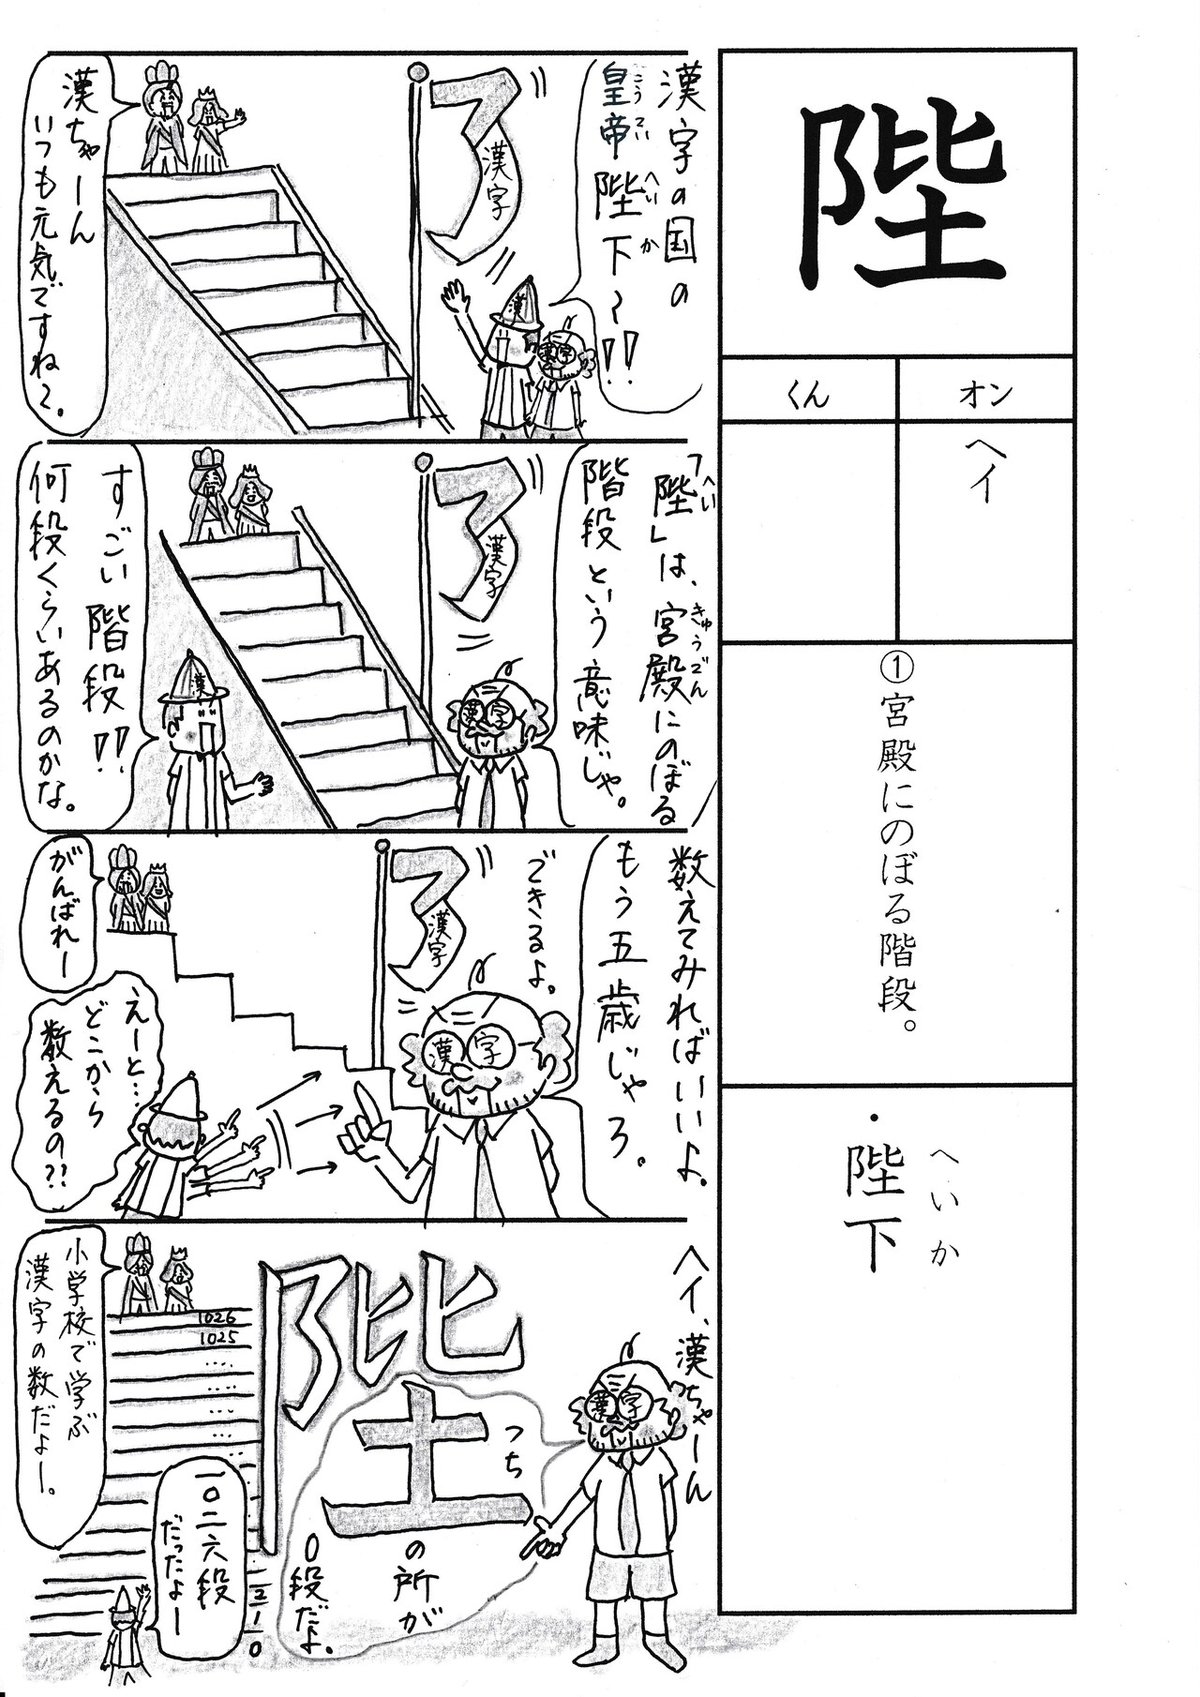 陛
オン
くん
ヘイ
①宮殿にのぼる階段。
・陛下
へいか
漢字の国の
皇帝陛下〜!!
こうてい
へいか
漢字
漢
漢字
漢ちゃーん
いつも元気ですね〜。
「陛」は、宮殿にのぼる
へい
きゅうでん
階段という意味じゃ。
漢字
漢字
漢
すごい階段!!
何段くらいあるのかな。
数えてみればいいよ。
もう五歳じゃろ。
できるよ。
漢字
漢字
がんばれー
えーと…
どこから
数えるの??
ヘイ、漢ちゃーん
漢字
陛
つち
の所が
0段だよ。
小学校で学ぶ
漢字の数だよー。
1026
1025
一〇二六段
だったよー
2
1
0